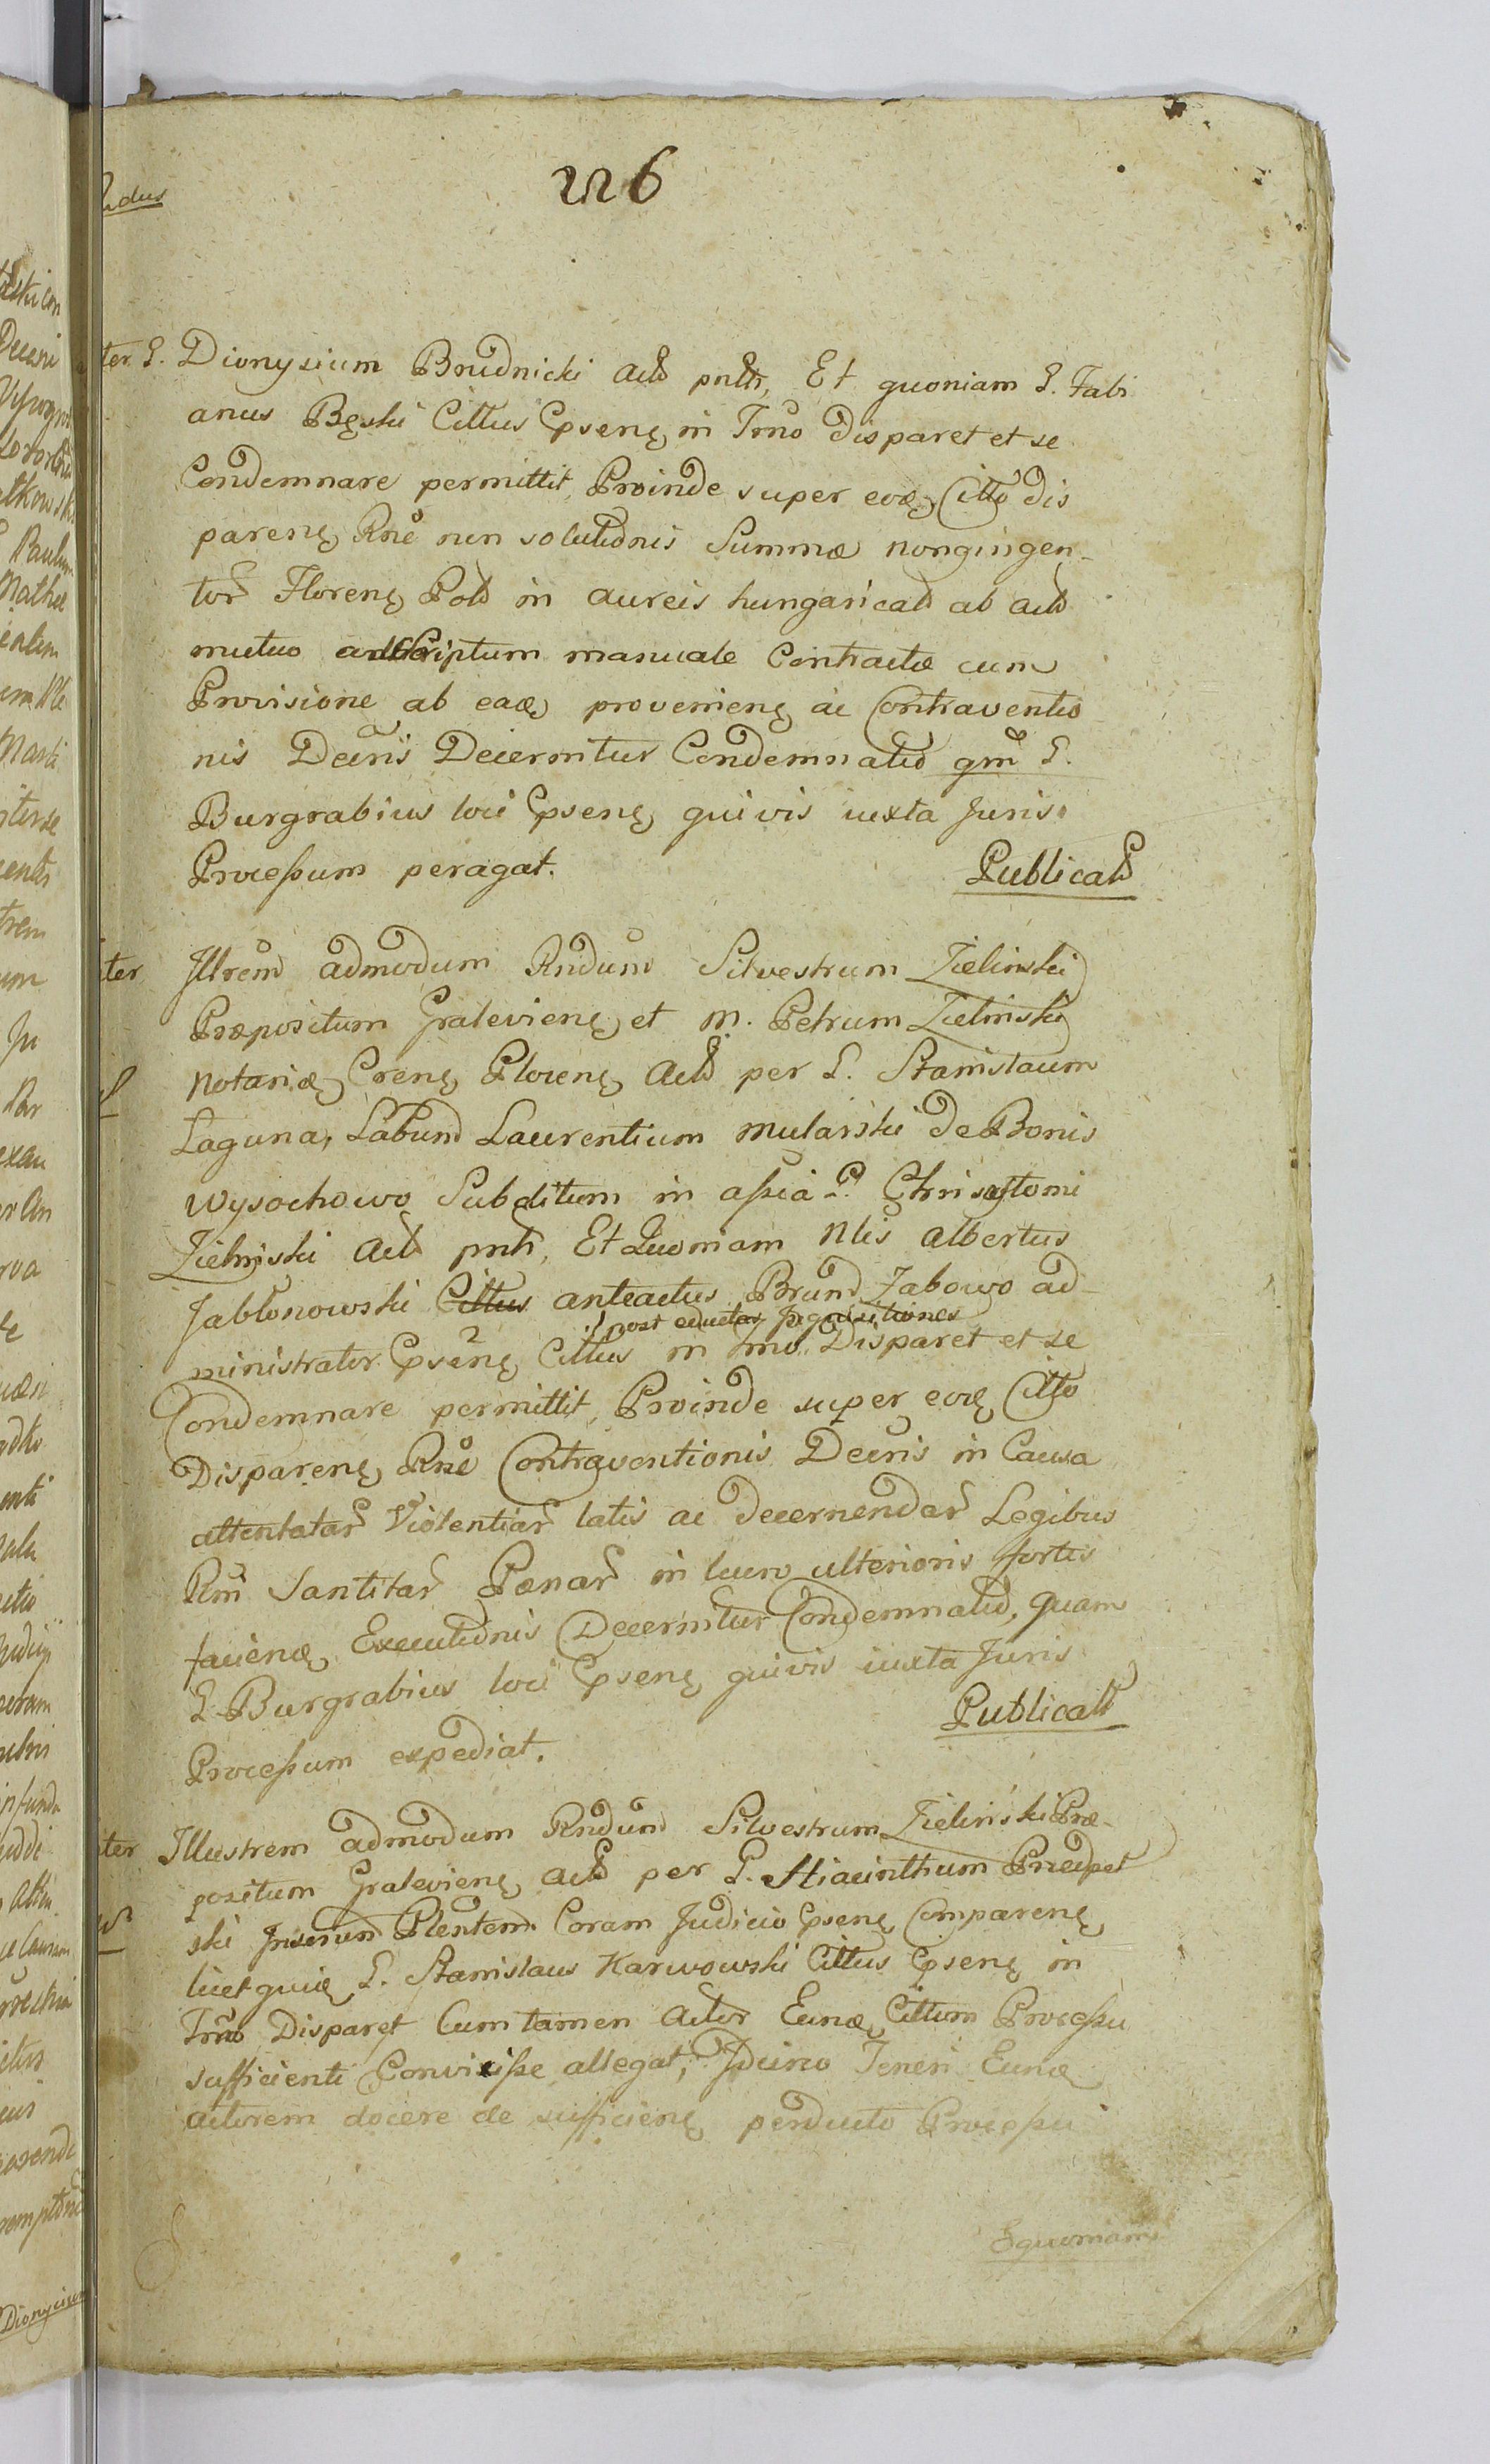 226
ter G. Dionysium Brudnicki Actt pntt, Et quoniam G. Fabi
anus Bęski Cittus Cpsenę in Trno Disparet et se
Condemnare permittit, Proinde super eoę Citto dis
parenę Rne non solutionis Summæ nongingen-
tor Florenę Pol in aureis hungarical ab act
mutuo Scriptum manuale Contractæ cum
Provisione ab eaę provenienę ac Contraventio
nis Decris Decernitur Condemnatio qm G.
Burgrabius loci Cpsenę quivis iuxta Juris
Processum peragat.
Publicat
ter Jllrem admodum Rndum Silvestrum Zielinski
Præpositum Gralevienę et M. Petrum Zielinski
Notariæ Crenę Plocenę Act per G. Stanislaum
Laguna, Labund Laurentium Mularski De Bonis
Wysochowo Subditum in assia G. Chrisostomi
Zielinski Act pnt, Et Quoniam Nlis Albertus
Jabłonowski Cittus anteactus Brund Zabowo ad-
post eductas Jnquisitiones
ministrator Cpsenę Cittus in Trno Disparet et se
Condemnare permittit, Proinde super eoę Citto
Disparenę Rne Contraventionis Decris in Causa
attentatar Violentiar latis ac decernendar Legibus
Rni Santitar Pænar in lucro ulterioris fortis
facienę Executionis Decernitur Condemnatio, quam
G Burgrabius loci Cpsenę quivis iuxta Juris
Processum expediat.
Publicatt
ter Illustrem admodum Rndum Silvestrum Zielinski Præ-
positum Gralevienę Act per G. Hiacinthum Przedpeł
ski Plentem Coram Judicio Cpsenę Comparenę
licet quię G. Stanislaus Karwowski Cittus Cpsenę in
Trno Disparet Cum tamen Actor Eunę Cittum Processu
sufficienti Convicisse allegat, Jdcirco Teneri Eunę
actorem docere de sufficienę perducto Processu
Equoniam